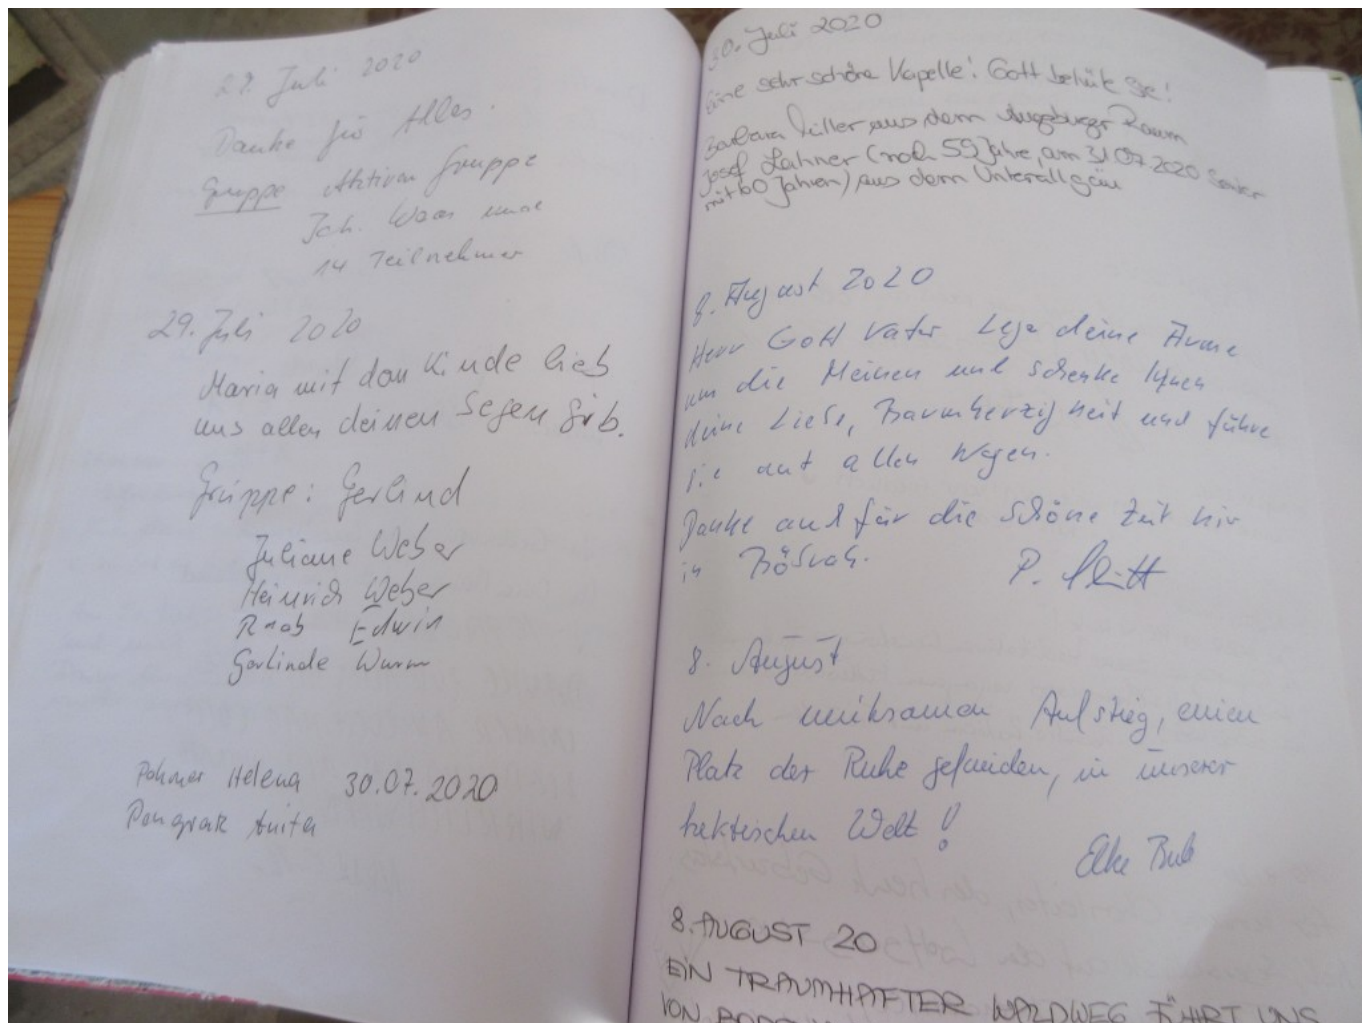 29. Juli 2020
Danke für Alles.
Gruppe Aktiven Gruppe
Joh. Waas und
14 Teilnehmer
29. Juli 2020
Maria mit dem Kinde lieb
uns allen deinen Segen gib.
Gruppe: Gerlind
Juliane Weber
Heinrich Weber
Raab Edwin
Gerlinde Wurm
Helena 30.07.2020
Pongratz Anita
30. Juli 2020
Eine sehr schöne Kapelle! Gott behüte Sie!
Barbara aus dem Augsburger Raum
Josef Lahner (noch 59 Jahre, am 31.07.2020 Senior
mit 60 Jahren) aus dem Unterallgäu
8. August 2020
Herr Gott Vater Lege deine Arme
um die Meinen und schenke Ihnen
deine Liebe, Barmherzigkeit und führe
sie auf allen Wegen.
Danke auch für die schöne Zeit hier
in
P.
8. August
Nach mühsamen Aufstieg, einen
Platz der Ruhe gefunden, in unserer
hektischen Welt!
Elke Bub
8. AUGUST 20
EIN TRAUMHAFTER WALDWEG FÜHRT UNS
VON